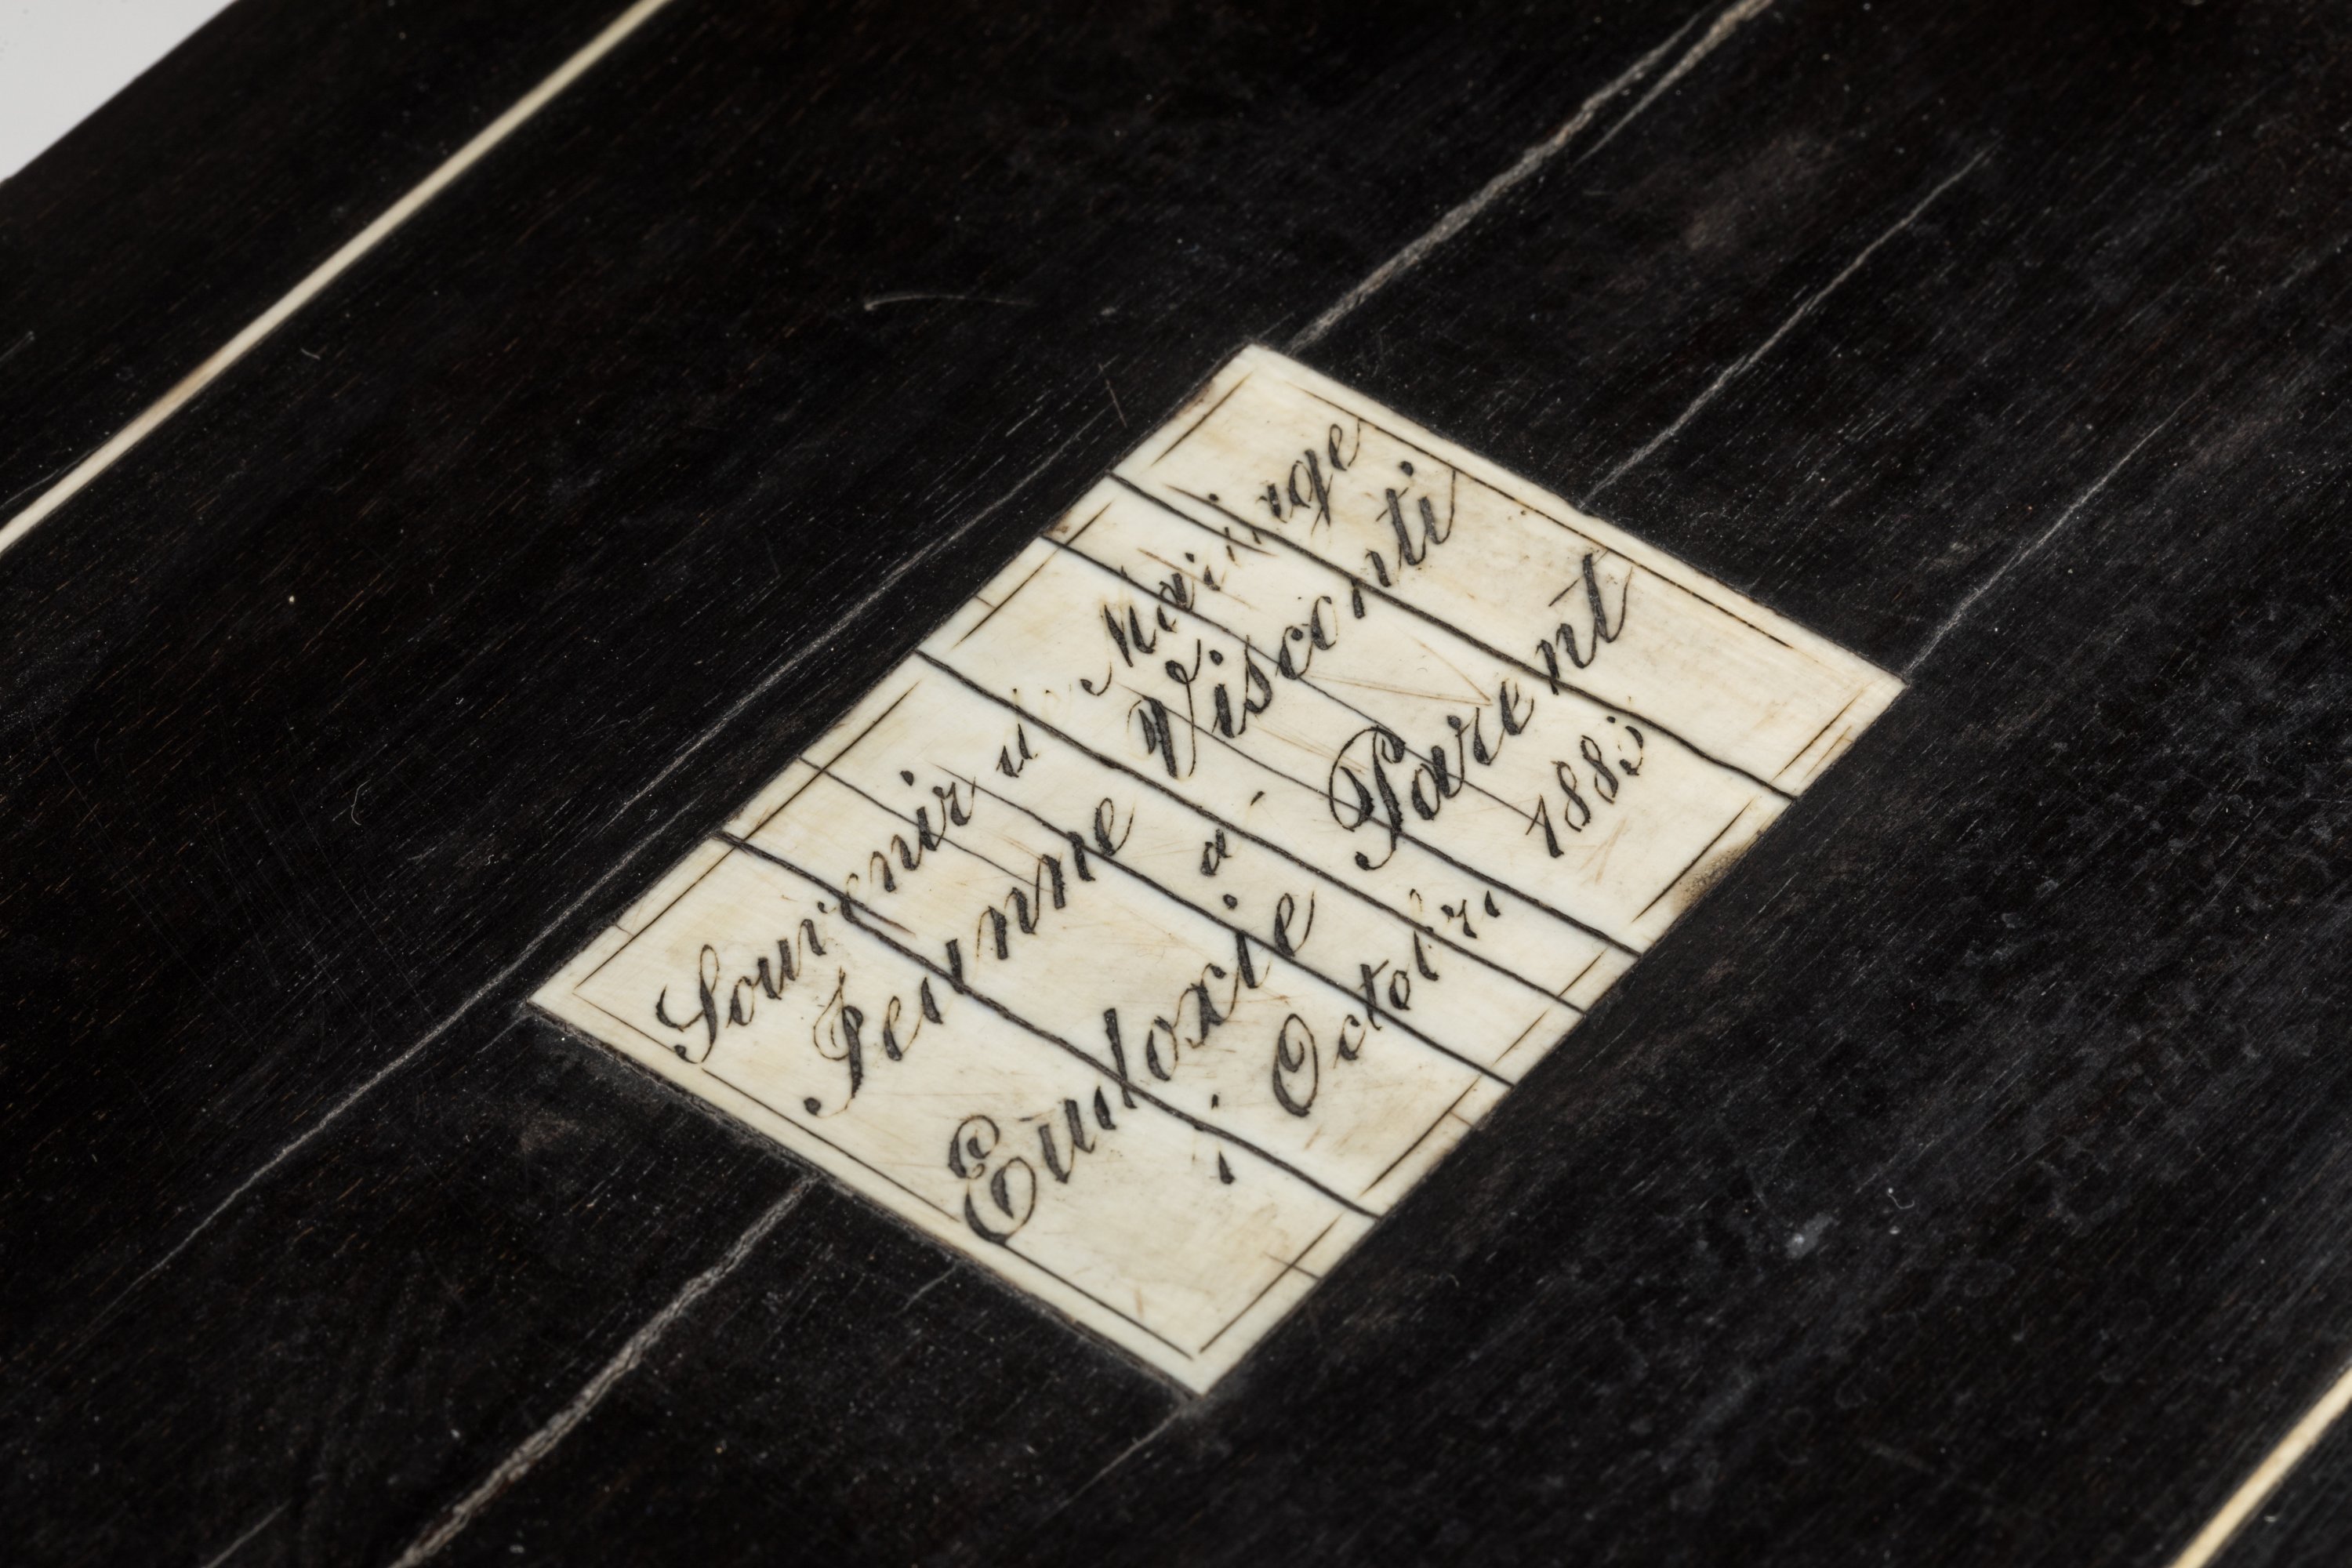 Souvenir de Mariage
Jeanne Visconti
à
Eudoxie Parent
1 Octobre 1885